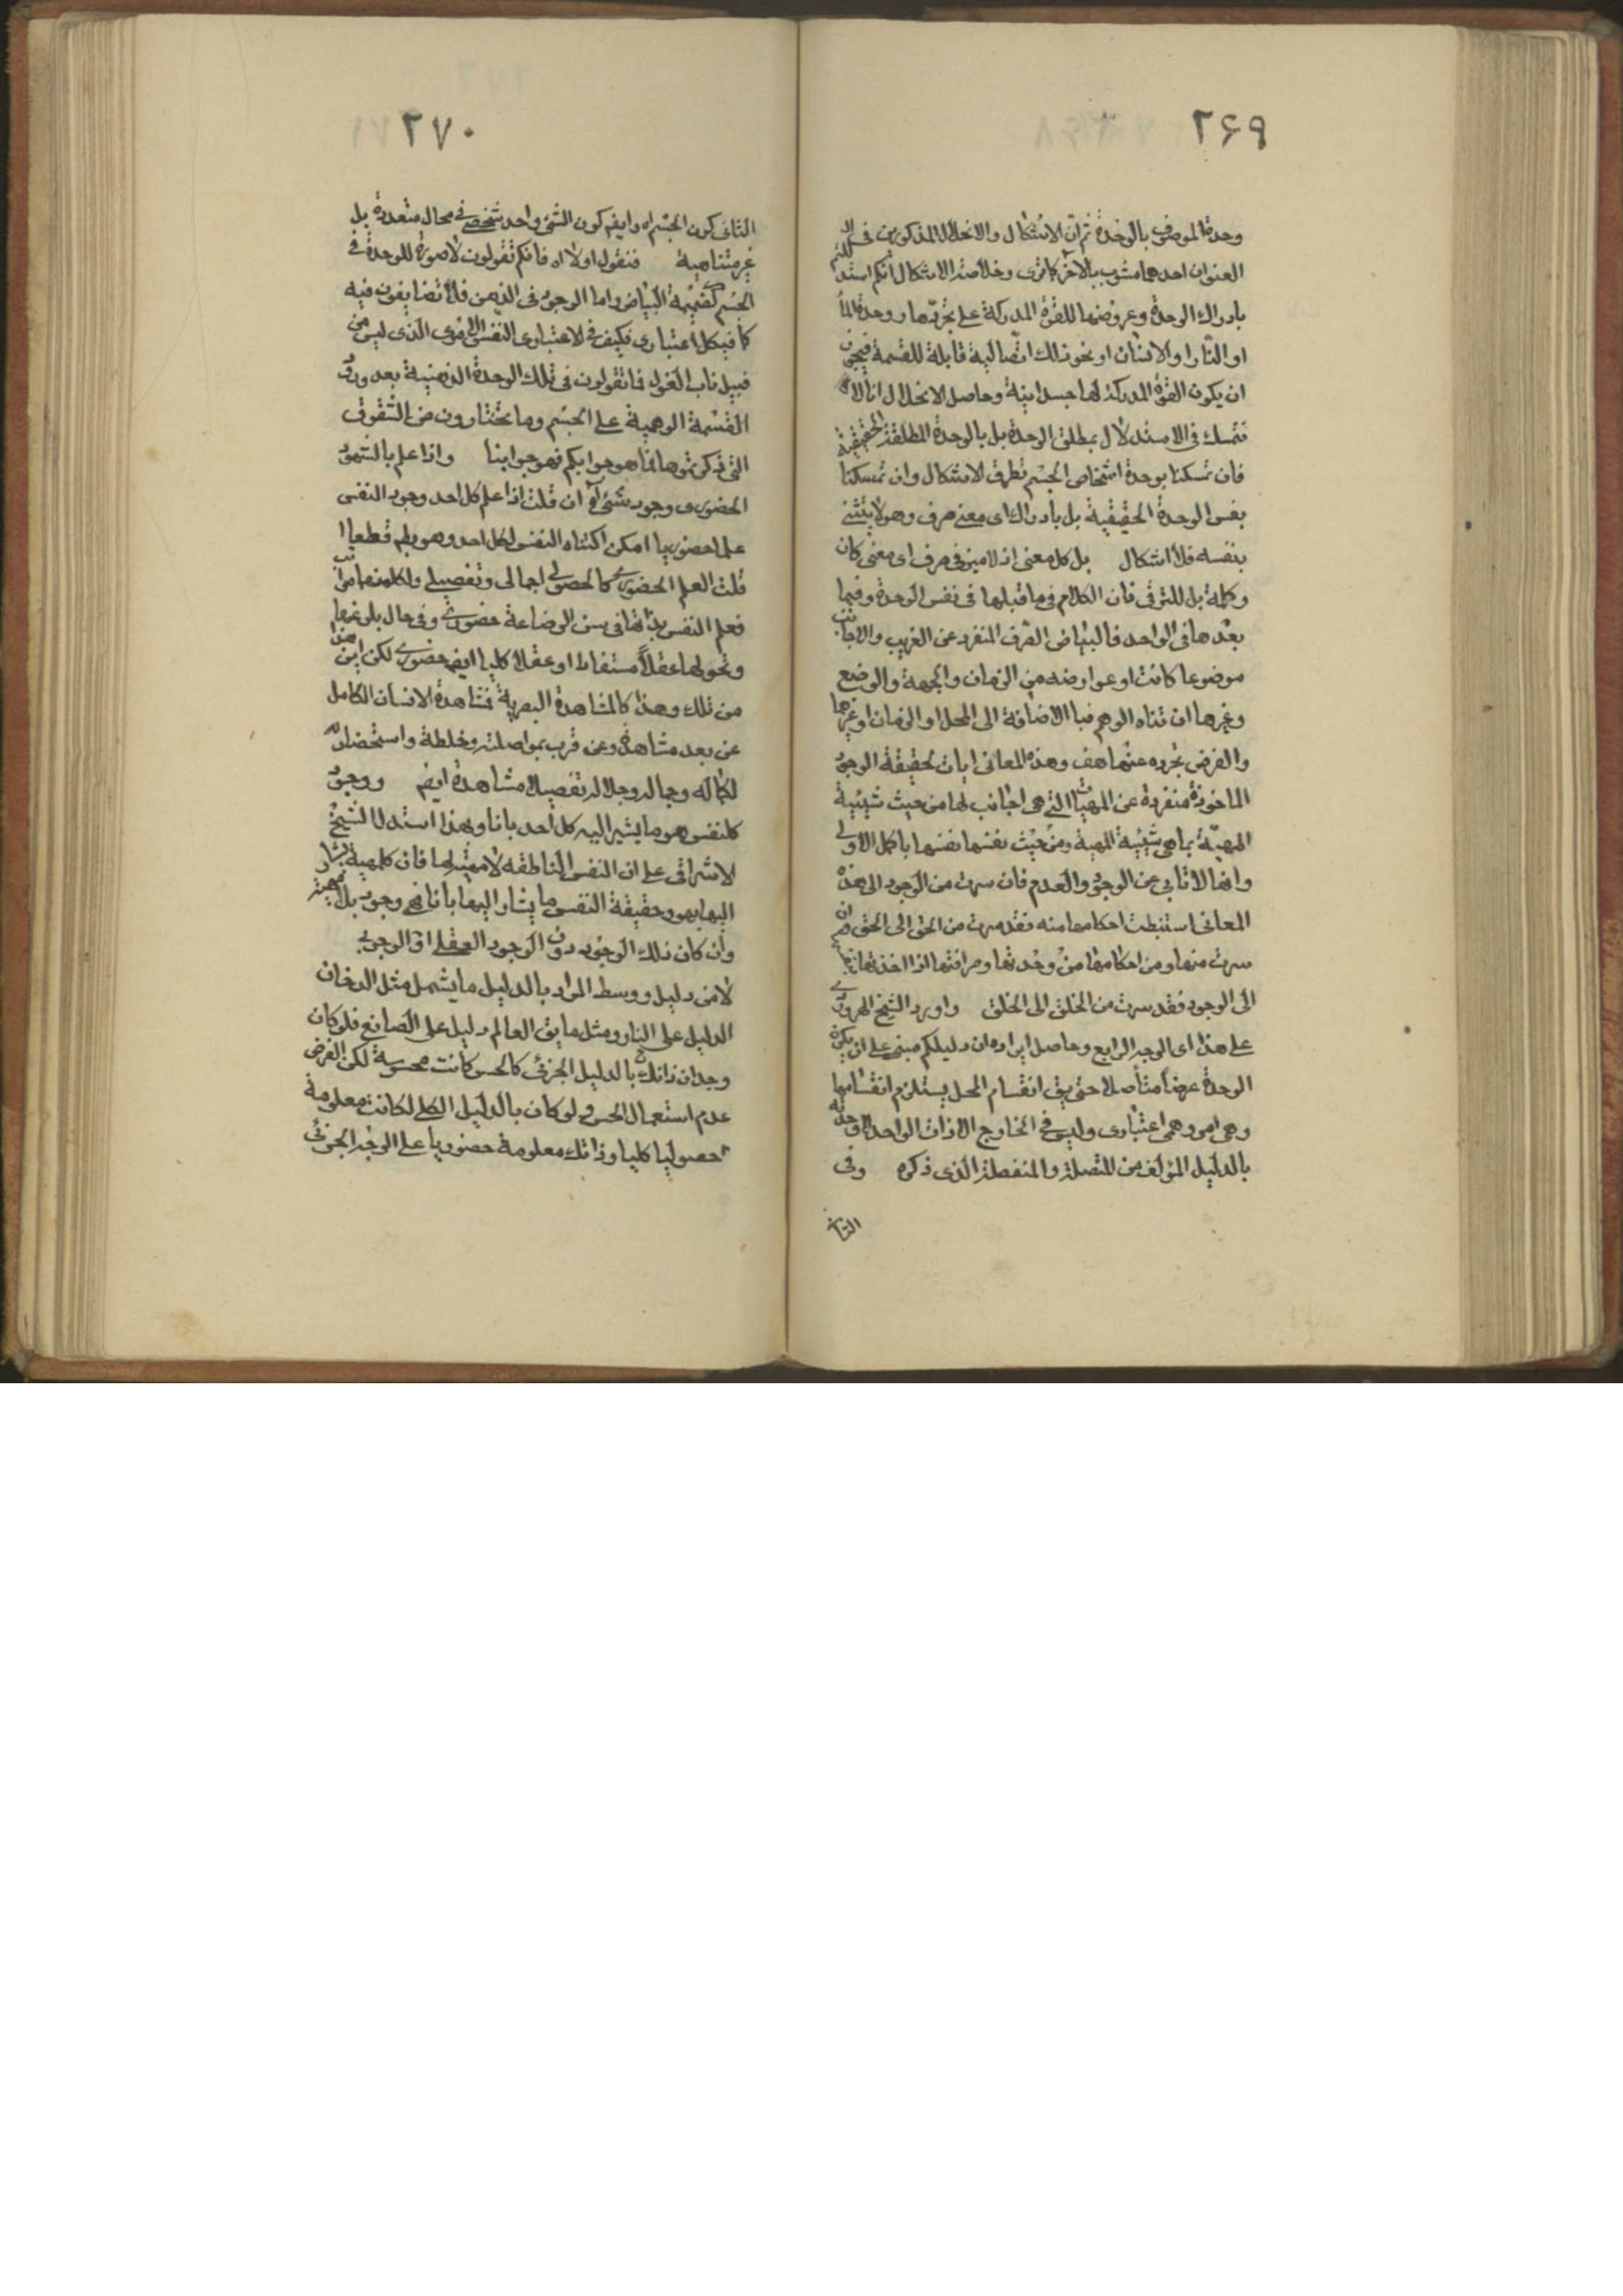 ۲۶۹
وحدة الموصوف بالوحدة ثم ان الاشكال والانحلال المذكورين فى
العنوان احدهما مشوب بالآخر كما ترى وخلاصة الاشكال انكم استد للتم
بادراك الوحدة وعروضها للقوة المدركة على تجردها ووحدة الماء
او النار او الانسان او نحو ذلك اتصالية قابلة للقسمة فيجوز
ان يكون القوة المدركة لها جسمانية وحاصل الانحلال انا لا
نتمسك فى الاستدلال بمطلق الوحدة بل بالوحدة المطلقة الحقيقية
فان تمسكنا بوحدة اشخاص الجسم تطرق الاشكال وان تمسكنا
بنفس الوحدة الحقيقية بل بادراك اى معنى صرف وهو لا يتثنى
بنفسه فلا اشكال بل كل معنى اذ لا ميز فى صرف اى معنى كان
وكلمة بل للترقى فان الكلام فى ما قبلها فى نفس الوحدة وفيما
بعدها فى الواحد فالبياض الصرف المنفرد عن الغريب والاجانب
موضوعا كانت او عوارضه من الزمان والجهة والوضع
وغيرها ان ثناه الوهم فبالاضافة الى المحل او الزمان او غيرهما
والفرض تجرده عنها هف وهذه المعانى ايات لحقيقة الوجود
الماخوذة منفردة عن المهيات التى هى اجانب لها من حيث شيئية
المهية بما هى شيئية المهية ومن حيث نفسها نفسها باكمل الاولى
وانها لا تابى عن الوجود والعدم فان سرت من الوجود الى هذه
المعانى استنبطت احكامها منه فقد سرت من الحق الى الحق وان
سرت منها ومن احكامها من وحدتها وصرافتها اذا اخذتها
الى الوجود فقد سرت من الخلق الى الخلق واورد الشيخ السهروردى
على هذا اى الوجه الرابع وحاصل ايراده ان دليلكم مبنى على ان يكون
الوحدة عرضا متأصلا حتى يق انقسام المحل يستلزم انقسامها
وهى امر وهمى اعتبارى وليس فى الخارج الا ذات الواحد لا وحدته
بالدليل المؤلف من المتصلة والمنفصلة الذى ذكره وفى
الثانى
۲۷۰
الثانى كون الجسم اه وايضا كون الشئ واحد شخصى فى محال متعددة بل
غير متناهية فنقول اولا اه فانكم تقولون لا صورة للوحدة فى
الجسم كقسمة البياض واما الوجود فى الذهن فلا تضايقون فيه
كما فى كل اعتبارى فكيف فى الاعتبارى النفس الامرى الذى ليس من
قبيل ناب الغول فما تقولون فى تلك الوحدة الذهنية بعد ورود
القسمة الوهمية على الجسم وما تختارون من الشقوق
التى ذكرتموها فما هو جوابكم فهو جوابنا واذا علم بالشهود
الحضورى وجود شئ اه ان قلت اذا علم كل احد وجود النفس
علما حضوريا امكن اكتناه النفس لكل احد وهو بط قطعا
قلت العلم الحضورى كالحصولى اجمالى وتفصيلى ولكل منهما مراتب
فعلم النفس بذاتها فى سن الرضاعة حضورى وفى حال بلوغها
وتحولها عقلا مستفادا وعقلا كليا ايضا حضورى لكن اين هذا
من ذلك وهذا كالمشاهدة البصرية فمشاهدة الانسان الكامل
عن بعد مشاهدة وعن قرب بمواصلته وخلطة واستحضار
لكماله وجماله وجلاله تفصيلا مشاهدة ايضا ووجود
كل نفس هو ما يشير اليه كل احد بانا وبهذا استدل الشيخ
الاشراقى على ان النفس الناطقه لا مهية لها فان كل مهية يشار
اليها بهو وحقيقة النفس ما يشار اليها بانا فهى وجود بلا مهية
وان كان ذلك الوجود دون الوجود العقلى او الوجوبى
لا من دليل ووسط المراد بالدليل ما يشمل مثل الدخان
الدليل على النار ومثل ما يق العالم دليل على الصانع فلو كان
وجدان ذاتك بالدليل الجزئى كالحس كانت محسوسة لكن الفرض
عدم استعمال الحس ولو كان بالدليل الكلى لكانت معلومة
حصوليا كليا وذاتك معلومة حضوريا على الوجه الجزئى